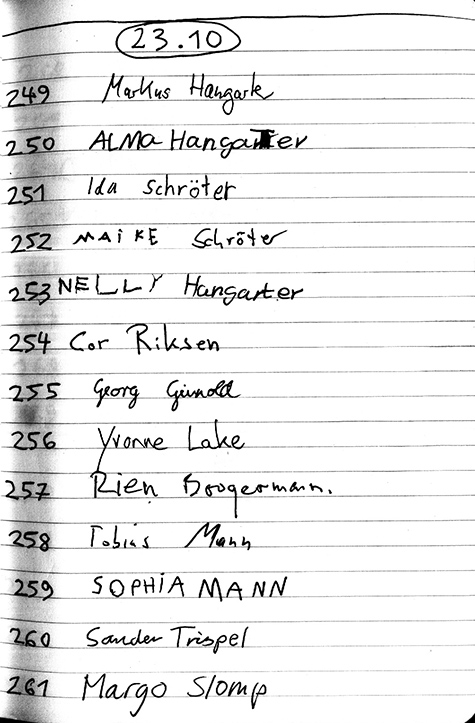 23.10
249 Markus Hangarte
250 ALMA Hangarter
251 Ida Schröter
252 MAiKE Schröter
253 NELLY Hangarter
254 Cor Riksen
255 Georg
256 Yvonne Lake
257 Rien Boogermann.
258 Tobias Mann
259 SOPHiA MANN
260 Sander Trispel
261 Margo Slomp